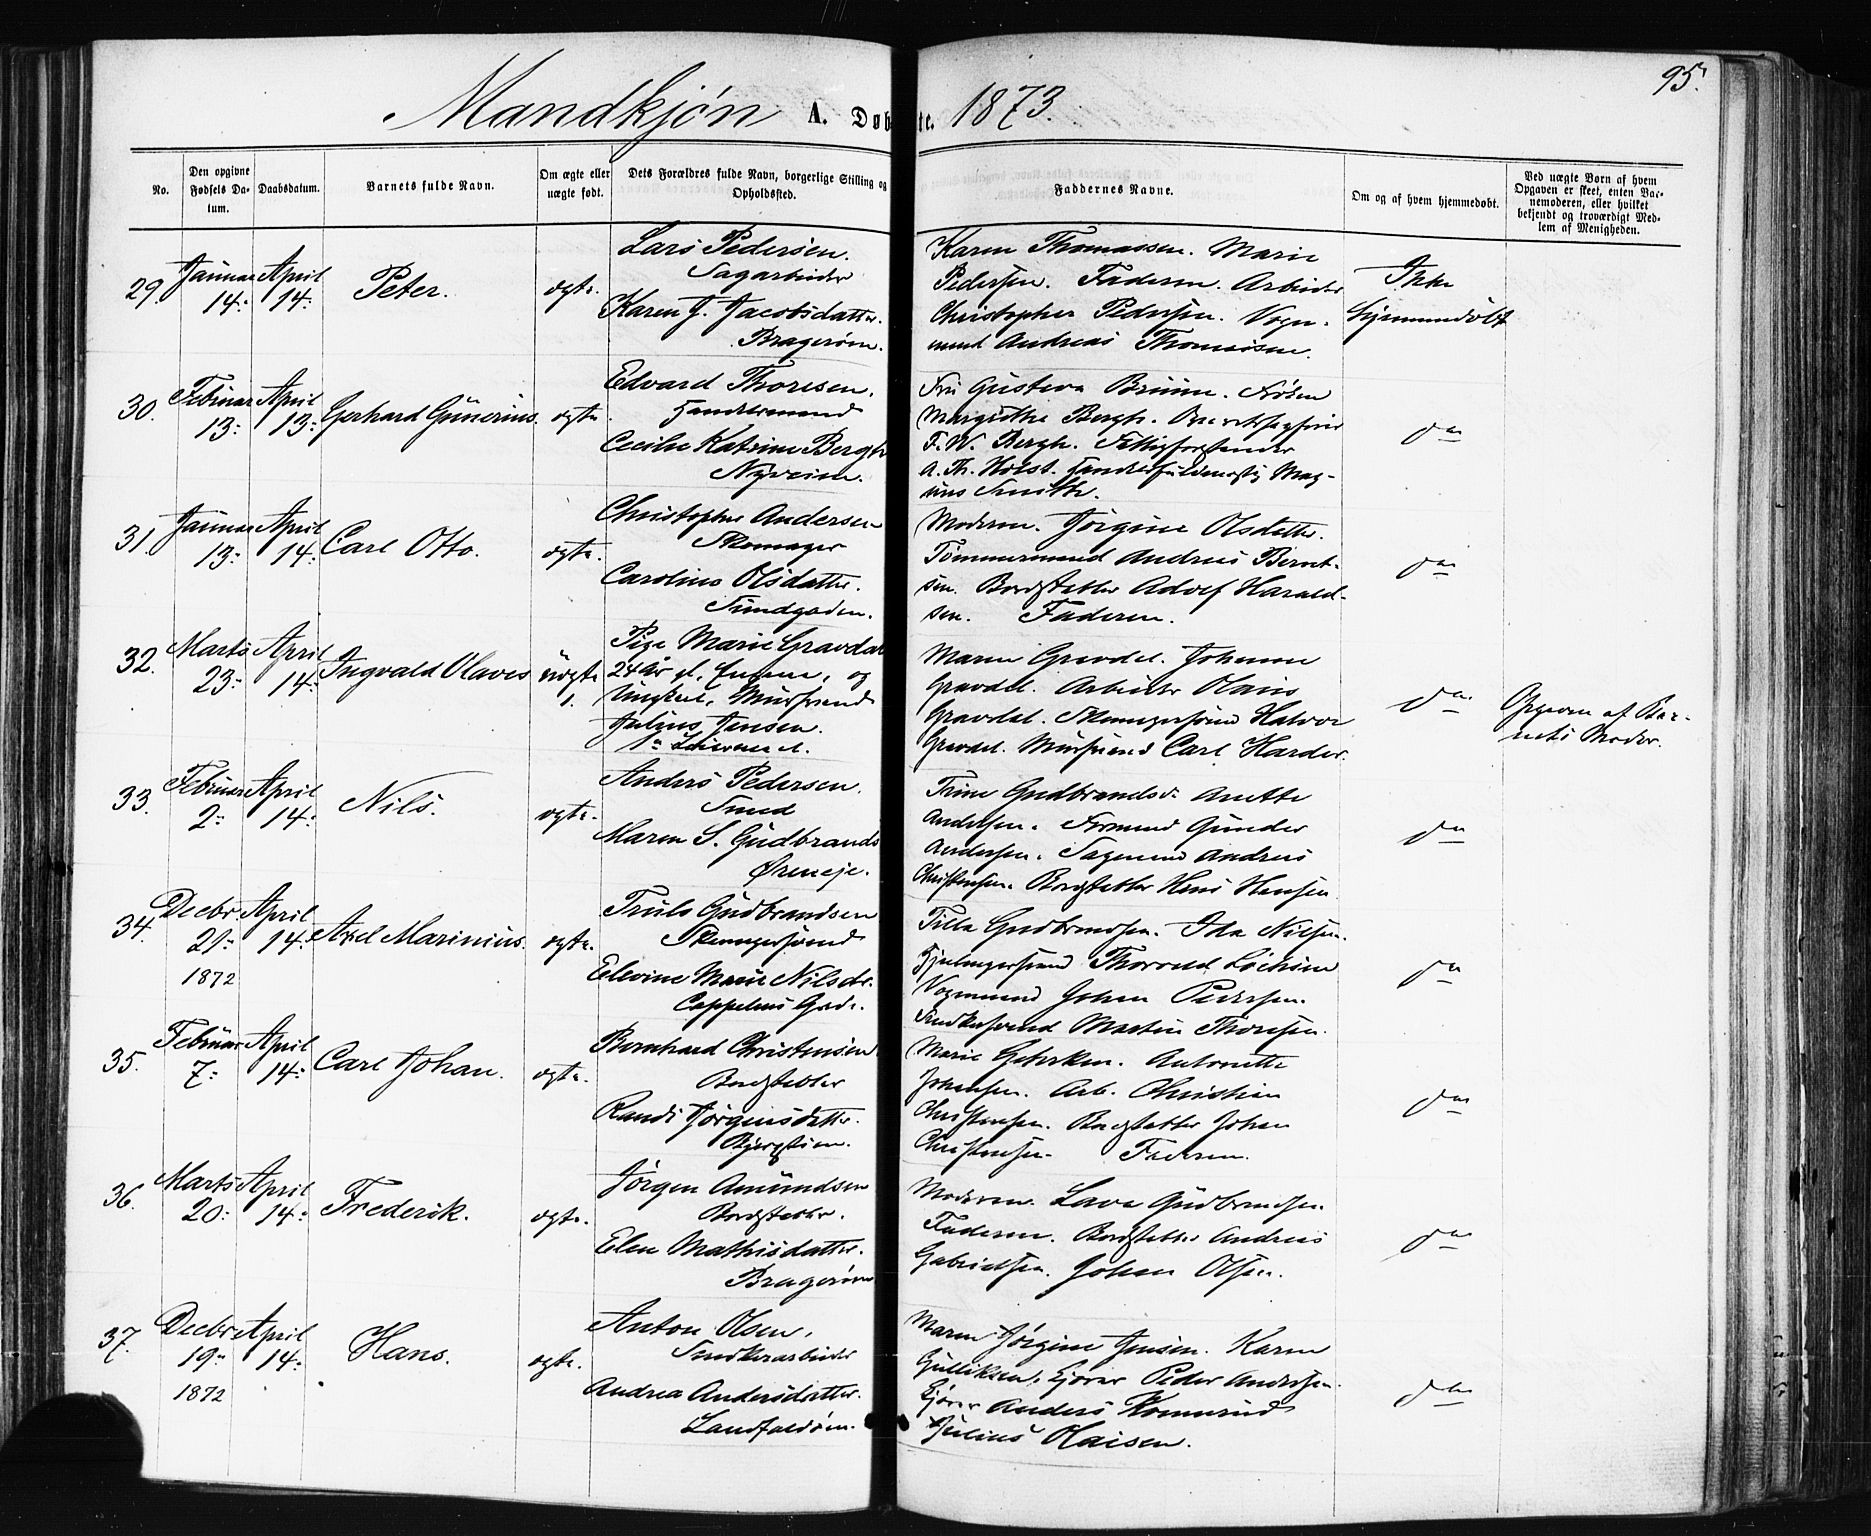 95.
Mandkjøn A. Døbte. 1873.
No.
Den opgivne Fødsels Da-
tum.
Daabsdatum.
Barnets fulde Navn.
Om ægte eller
uægte født.
Dets Forældres fulde Navn, borgerlige Stilling og
Opholdssted.
Faddernes Navne.
Om og af hvem hjemmedøbt.
Ved uægte Børn af hvem
Opgaven er skeet, enten Bar-
nemoderen, eller hvilket
bekjendt og troværdigt Med-
lem af Menigheden.
29. Januar 14: April 14: Peter. ægte.
Lars Pedersen.
Sagarbeider
Karen J. Jacobsdatter.
Bragerøen.
Karen Thomassen. Marie
Pedersen. Faderen. Arbeider
Christopher Pedersen. Vogn-
mand Andreas Thomassen.
Ikke
Hjemmedøbt
30. Februar 13: April 13: Gerhard Günerius. ægte
Edvard Thoresen.
Handelsmand
Cecilie Katrine Bergh
Nyveien.
Fru Gustava Bruun. Frøken
Margrethe Bergh.
F. W. Bergh. Fattigforstander
A. Th. Holst. Handelsfuldmægtig Mag-
nus Smith.
do
31. Januar 13: April 14: Carl Otto. ægte.
Christopher Andersen
Skomager
Caroline Olsdatter.
Sundgaden.
Moderen. Jørgine Olsdatter.
Tømmermand Andreas Bernt-
sen. Bordstabler Adolf Harald-
sen. Faderen.
do
32. Marts 23: April 14: Ingvald Olaves uægte
1.
Pige Marie Gravdal
24 Aar gl. og
Ungkarl, Mursvend
Julius Jensen.
Maren Gravdal. Johanne
Gravdal. Arbeider Hans
Gravdal. Skomagersvend Halvor
Gravdal. Mursvend Carl Harder.
do
Opgaven af Bar-
nets Moder.
33. Februar 2: April 14: Nils. ægte.
Anders Pedersen.
Smed
Maren S. Gudbrands
Øreneje.
Trine Gudbrandsd. Anette
Andersen. Formand Gunder
Andersen. Sagmand Andreas
Christensen. Bordstabler Hans Hansen
do
34. Decbr. 21: April 14: Axel Marinius. ægte.
1872
Truls Gudbrandsen
Skomagersvend
Elevine Marie Nilsdr.
Cappelens Gade.
Tilla Gudbrandsen. Ida Nilsen.
Thorvald
Vognmand Johan Pedersen.
Snedkersvend Martin Thoresen.
do
35. Februar 7: April 14: Carl Johan. ægte.
Bernhard Christensen
Bordstabler
Randi Jørgensdatter.
Marie Antonette
Johansen. Arb. Christian
Christensen. Bordstabler Johan
Christensen. Faderen.
do
36. Marts 20: April 14: Frederik. ægte.
Jørgen Amundsen
Bordstabler.
Elen Mathisdatter.
Bragerøen
Moderen. Lava Gudbrandsen.
Faderen. Bordstabler Andreas
Gabrielsen. Johan Olsen.
do
37. Decbr. 19: April 14: Hans. ægte.
1872
Anton Olsen.
Snedkerarbeider
Andrea Andersdatter.
Landfaldøen.
Maren Jørgine Jensen. Karen
Gulliksen. Kjører Peder Andersen.
Kjører Anders Komnæs
Julius Olaisen.
do